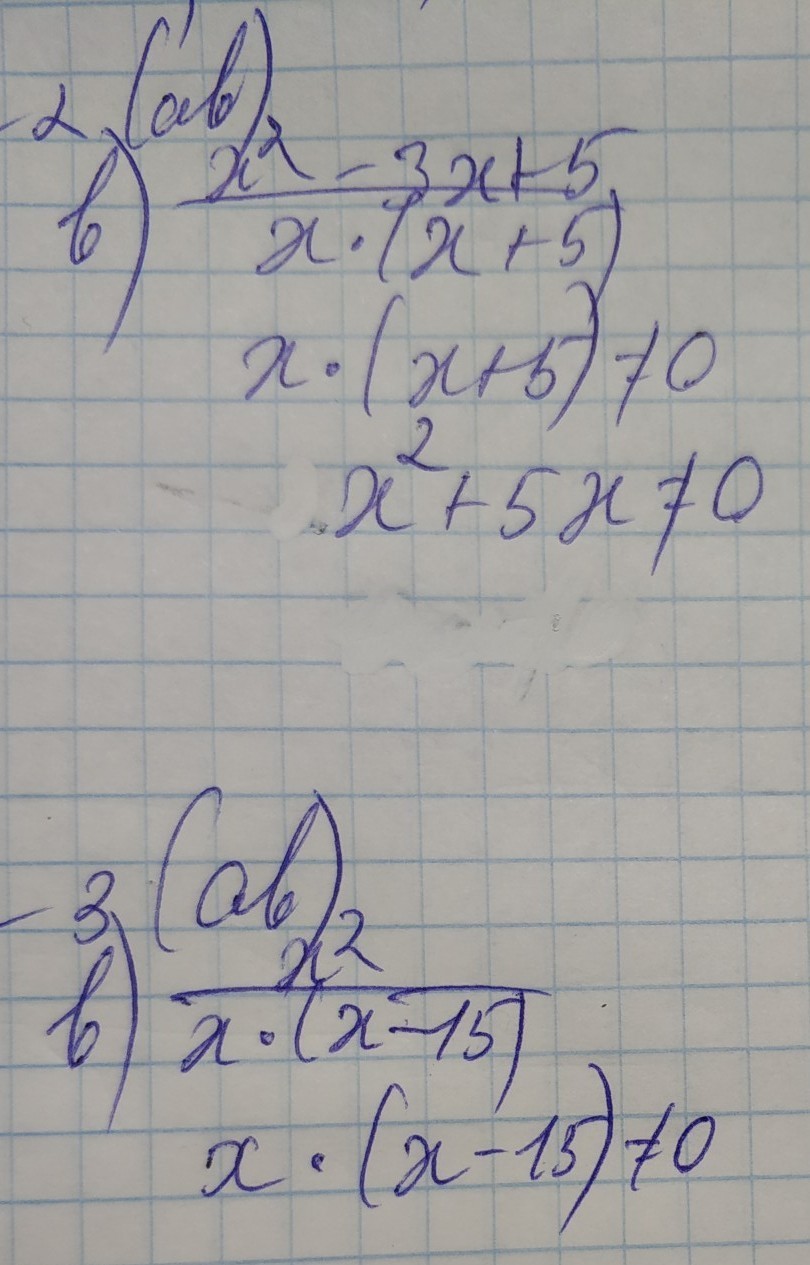 -2 (ab)
b) x² - 3x+5
x·(x+5)
x·(x+5)≠0
x²+5x≠0
-3 (ab)
b) x²
x·(x-15)
x·(x-15)≠0